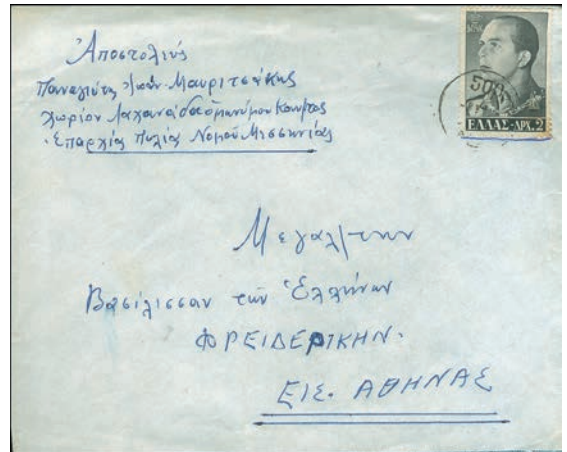 Ἀποστολεύς
Παναγιώτης Ἰωάν. Μαυριτσάκης
χωρίον Λαχανάδα ὁμωνύμου Κοινότητος
Ἐπαρχίας Πυλίας Νομοῦ Μεσσηνίας
ΕΛΛΑΣ-ΔΡΧ.2
500
Μεγαλ/την
Βασίλισσαν τῶν Ἑλλήνων
ΦΡΕΙΔΕΡΙΚΗΝ.
ΕΙΣ. ΑΘΗΝΑΣ